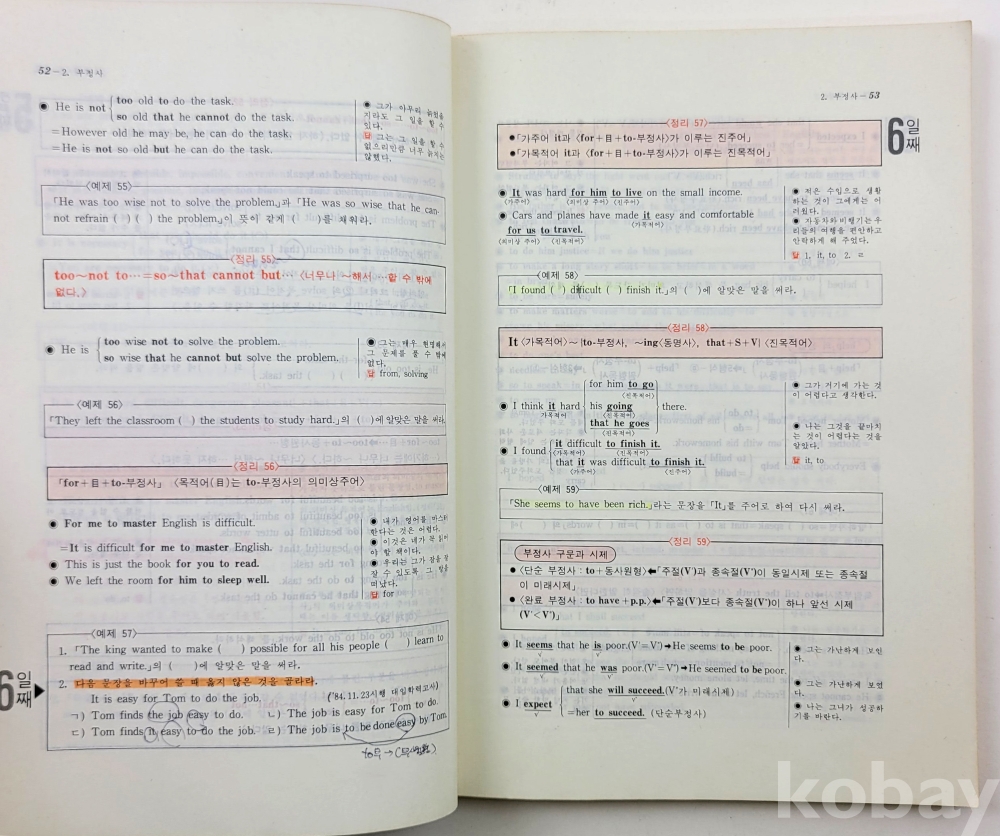 52-2. 부정사
● He is not too old to do the task.
so old that he cannot do the task.
=However old he may be, he can do the task.
=He is not so old but he can do the task.
● 그가 아무리 늙었을
지라도 그 일을 할 수
있다.
답 그는 그 일을 할 수
없으리만큼 너무 늙지는
않했다.
〈예제 55〉
「He was too wise not to solve the problem.」과 「He was so wise that he can-
not refrain ( ) ( ) the problem.」이 뜻이 같게 ( )를 채워라.
〈정리 55〉
too~not to…=so~that cannot but… 〈너무나 ~해서 …할 수 밖에
없다.〉
● He is too wise not to solve the problem.
so wise that he cannot but solve the problem.
● 그는 매우 현명해서
그 문제를 풀 수 밖에
없다.
답 from, solving
〈예제 56〉
「They left the classroom ( ) the students to study hard.」의 ( )에 알맞은 말을 써라.
〈정리 56〉
「for+目+to-부정사」 〈목적어(目)는 to-부정사의 의미상주어〉
● For me to master English is difficult.
=It is difficult for me to master English.
● This is just the book for you to read.
● We left the room for him to sleep well.
● 내가 영어를 마스터
한다는 것은 어렵다.
● 이것은 네가 꼭 읽어
야 할 책이다.
● 우리는 그가 잠을 잘
잘 수 있도록 그 방을
떠났다.
답 for
〈예제 57〉
1. 「The king wanted to make ( ) possible for all his people ( ) learn to
read and write.」의 ( )에 알맞은 말을 써라.
2. 다음 문장을 바꾸어 쓸 때 옳지 않은 것을 골라라.
It is easy for Tom to do the job. ('84.11.23시행 대입학력고사)
ㄱ) Tom finds the job easy to do. ㄴ) The job is easy for Tom to do.
ㄷ) Tom finds it easy to do the job. ㄹ) The job is to be done easy by Tom.
to부 →
6일째
2. 부정사-53
6일째
〈정리 57〉
●「가주어 it과 〈for+目+to-부정사〉가 이루는 진주어」
●「가목적어 it과 〈for+目+to-부정사〉가 이루는 진목적어」
● It was hard for him to live on the small income.
(가주어) (의미상 주어) (진주어)
● Cars and planes have made it easy and comfortable
(가목적어)
for us to travel.
(의미상 주어) (진목적어)
● 적은 수입으로 생활
하는 것이 그에게는 어
려웠다.
● 자동차와 비행기는 우
리들의 여행을 편안하고
안락하게 해 주었다.
답 1. it, to 2. ㄹ
〈예제 58〉
「I found ( ) difficult ( ) finish it.」의 ( )에 알맞은 말을 써라.
〈정리 58〉
It〈가목적어〉~ to-부정사, ~ing〈동명사〉, that+S+V 〈진목적어〉
for him to go
(진목적어)
● I think it hard his going there.
(가목적어) (진목적어)
that he goes
(진목적어)
● I found it difficult to finish it.
(가목적어) (진목적어)
that it was difficult to finish it.
(가주어) (진주어)
● 그가 거기에 가는 것
이 어렵다고 생각한다.
● 나는 그것을 끝마치
는 것이 어렵다는 것을
알았다.
답 it, to
〈예제 59〉
「She seems to have been rich.」라는 문장을 「It」를 주어로 하여 다시 써라.
〈정리 59〉
부정사 구문과 시제
●〈단순 부정사 : to+동사원형〉⬅「주절(V)과 종속절(V')이 동일시제 또는 종속절
이 미래시제」
●〈완료 부정사 : to have+p.p.〉⬅「주절(V)보다 종속절(V')이 하나 앞선 시제
(V'<V)」
● It seems that he is poor.(V'=V)➡He seems to be poor.
V V'
● It seemed that he was poor.(V'=V)➡He seemed to be poor.
V V'
● I expect that she will succeed.(V'가 미래시제)
V V'
=her to succeed. (단순부정사)
● 그는 가난하게 보인
다.
● 그는 가난하게 보였
다.
● 나는 그녀가 성공하
기를 바란다.
kobay